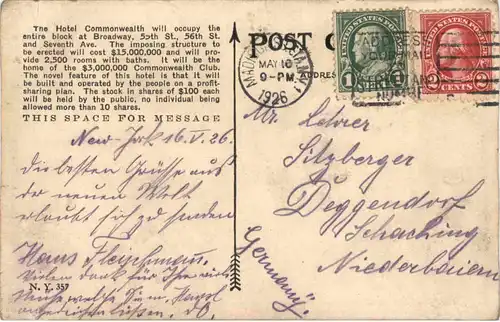 The Hotel Commonwealth will occupy the
entire block at Broadway, 55th St., 56th St.
and Seventh Ave. The imposing structure to
be erected will cost $15,000,000 and will pro-
vide 2,500 rooms with baths. It will be the
home of the $3,000,000 Commonwealth Club.
The novel feature of this hotel is that it will
be built and operated by the people on a profit-
sharing plan. The stock in shares of $100 each
will be held by the public, no individual being
allowed more than 10 shares.
THIS SPACE FOR MESSAGE
New-York 16.V.26.
die besten Grüsse aus
der neuen Welt
erlaubt sich zu senden
Hans Fleischmann.
Vielen dank für Ihre
N. Y. 357
POST
ADDRESS
MAY 16
9-PM
1926
UNITED STATES POSTAGE
1 CENT 1
UNITED STATES POSTAGE
2 CENTS 2
Mr. Lehrer
Sitzberger
Deggendorf
Schaching
Niederbaiern
(Germany)